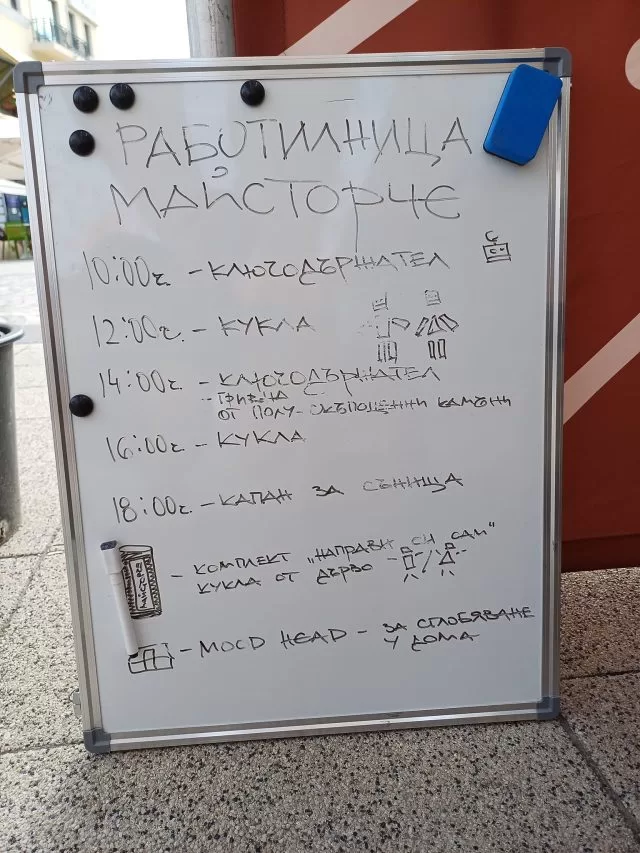 РАБОТИЛНИЦА
МАЙСТОРЧЕ
10:00г. - КЛЮЧОДЪРЖАТЕЛ
12:00г. - КУКЛА
14:00г. - КЛЮЧОДЪРЖАТЕЛ
ГРИВНА
ОТ ПОЛУ-СКЪПОЦЕННИ КАМЪНИ
16:00г. - КУКЛА
18:00г. - КАПАН ЗА СЪНИЩА
- КОМПЛЕКТ „НАПРАВИ СИ САМ“
КУКЛА ОТ ДЪРВО -
МАЙСТОРЧЕ
- MOOD HEAD - ЗА СГЛОБЯВАНЕ
У ДОМА